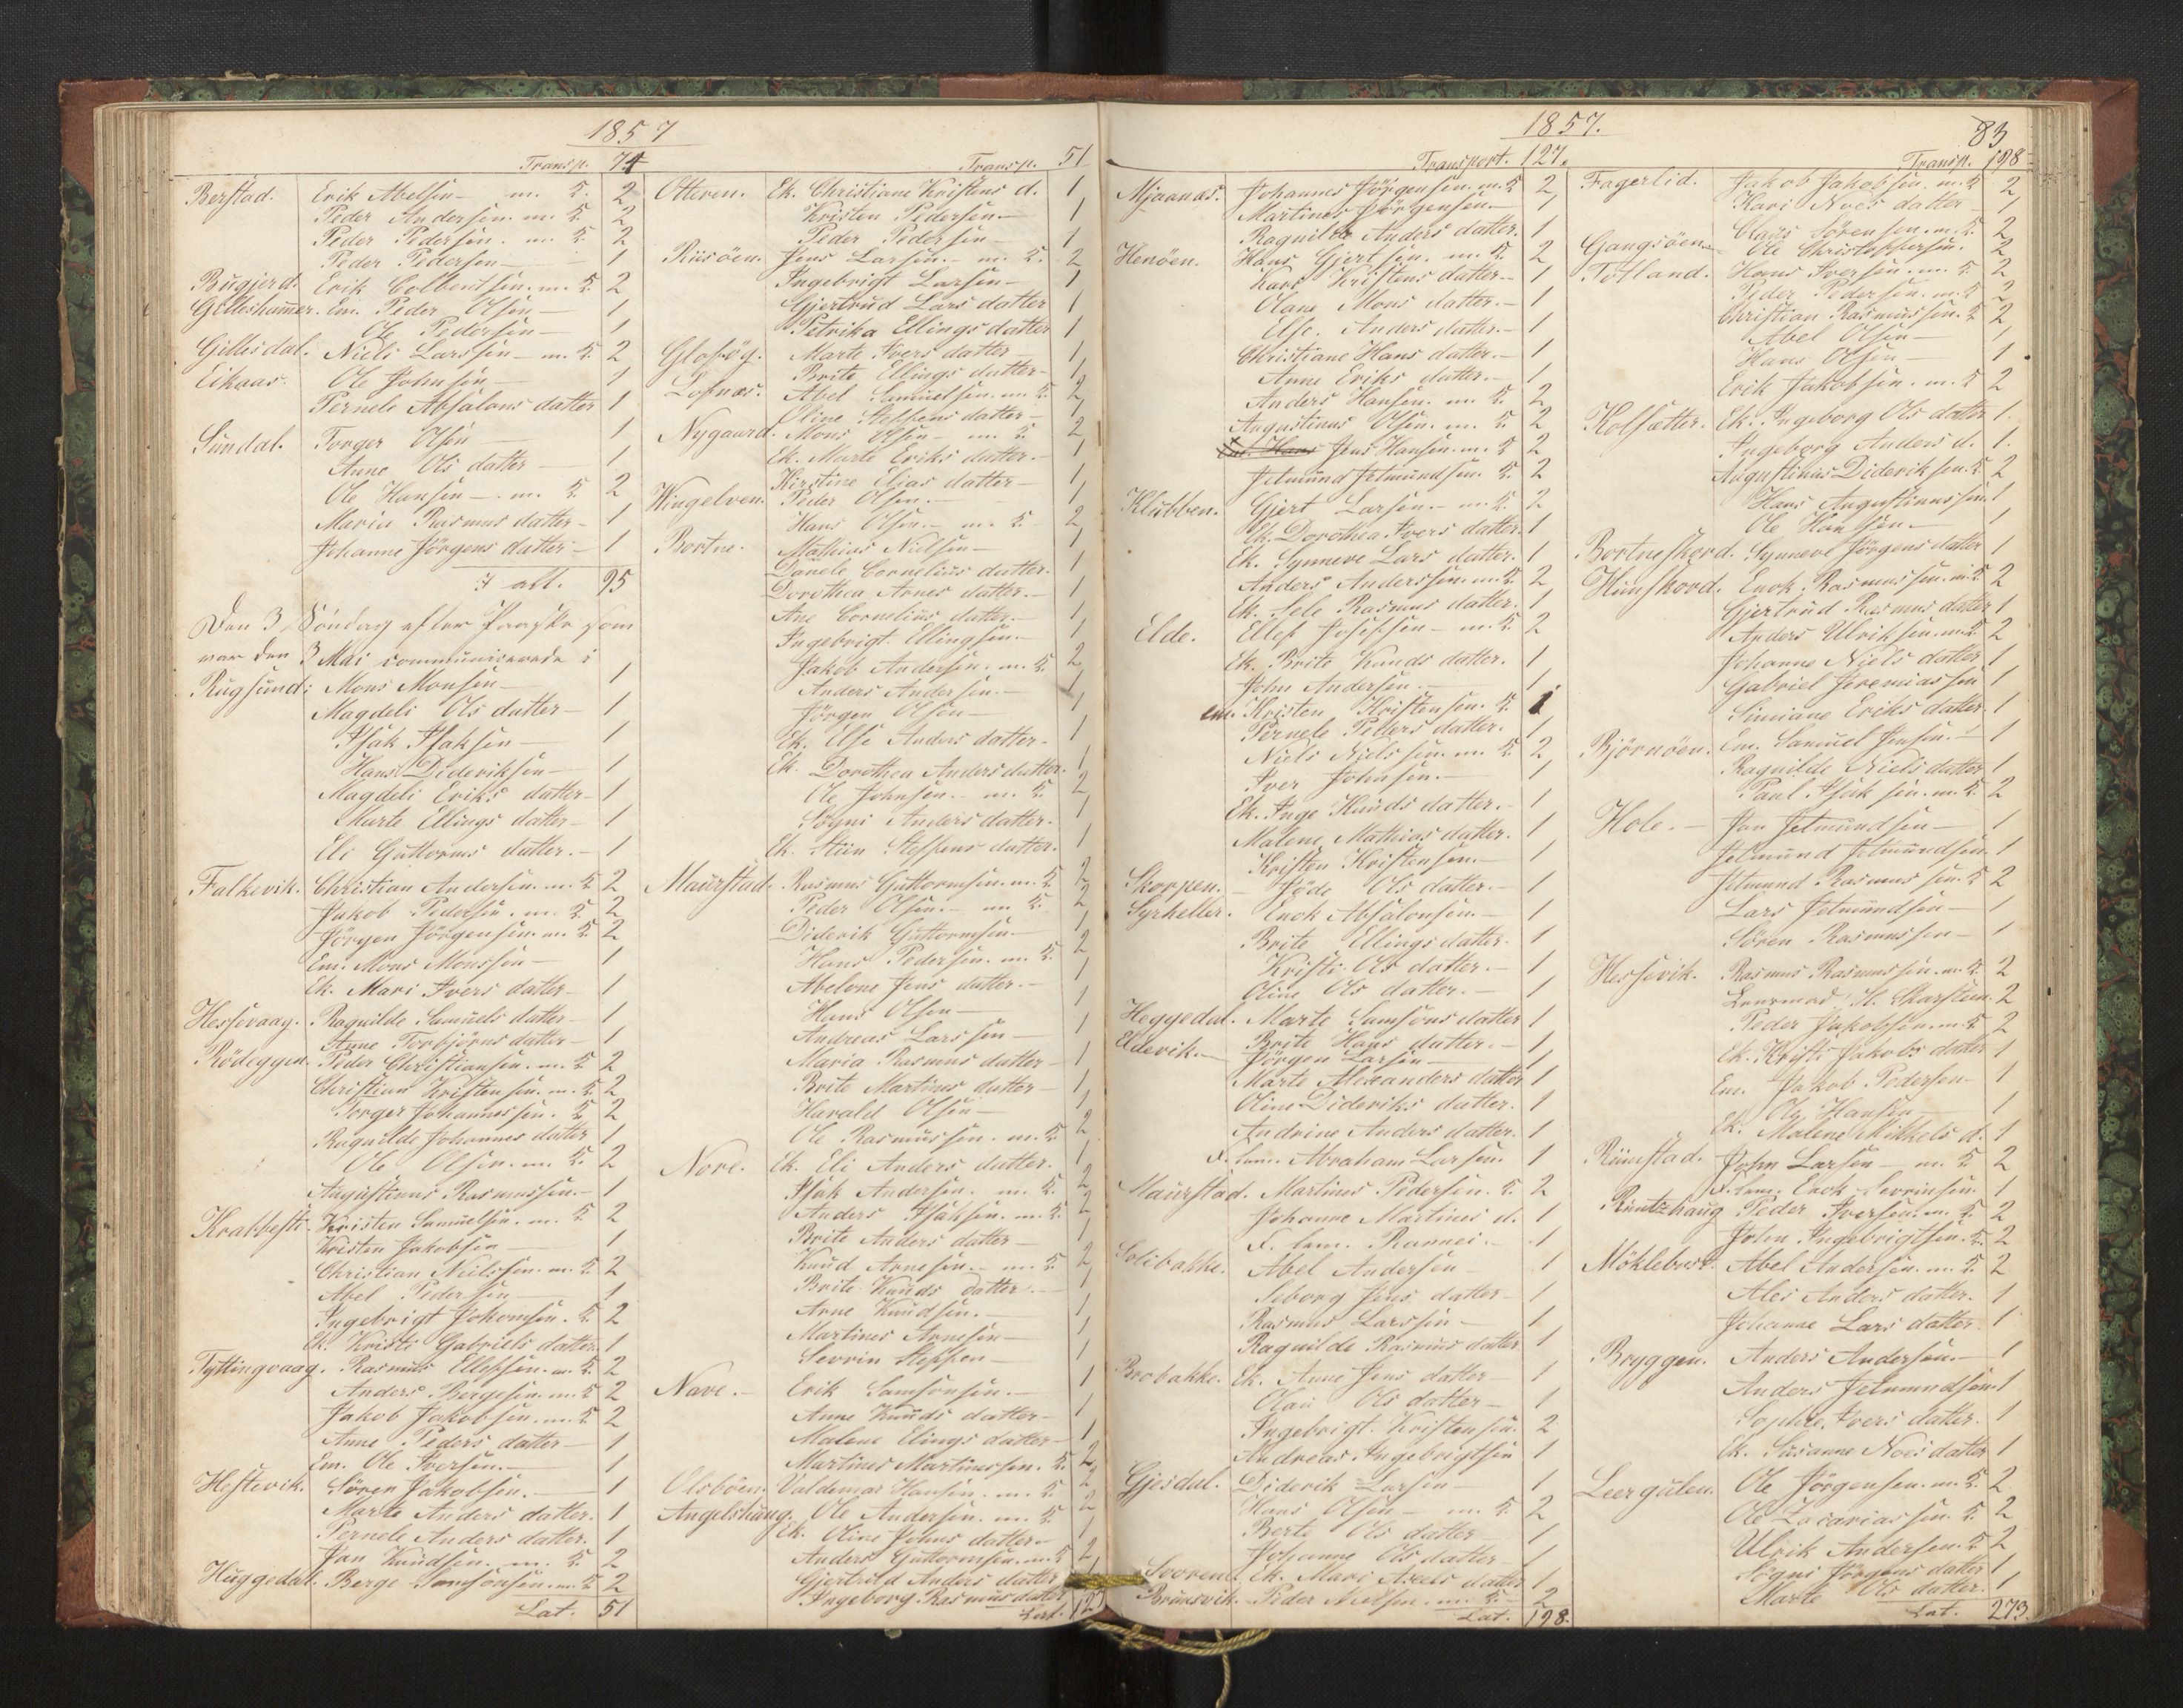 1857
Transp. 74
Berstad. Erik Abelsen m. K. 2
Peder Andersen. m. K. 2
Peder Pedersen. m. K. 2
Peder Pedersen 1
Bugjerd. Erik Colbentsen. m. K. 2
Gilleshamer. Em. Peder Olsen 1
Ole Pedersen 1
Gillesdal. Niels Larssen m. K. 2
Eikaas. Ole Johnsen 1
Pernele Absalons datter 1
Sundal. Torger Olsen 1
Anne Ols datter 1
Ole Hansen m. K. 2
Maria Rasmus datter 1
Johanne Jörgens datter 1
I alt. 95
Den 3 Söndag efter Paaske som
var den 3 Mai communicerede i
Rugsund: Mons Monsen 1
Magdeli Ols datter 1
Isak Isaksen 1
Hans Dideriksen 1
Magdeli Eriks datter 1
Marte Ellings datter 1
Eli Guttorms datter. 1
Falkevik. Christian Andersen. m. K. 2
Jakob Pedersen. m. K. 2
Jörgen Jörgensen. m. K. 2
Em. Mons Monssen 1
Ek. Mari Ivers datter 1
Hessevaag. Ragnilde Samuels datter 1
Anne Torbjörns datter 1
Rödeggen. Peder Christiansen. m. K. 2
Christian Kristensen. m. K. 2
Torger Johannessen. K. 2
Ragnilde Johannes datter 1
Ole Olsen. m. K. 2
Augustinus Rasmussen. 1
Krabbesti. Kristen Samuelsen. m. K. 2
Kristen Jakobsen 1
Christian Nielssen. m. K. 2
Abel Pedersen 1
Ingebrigt Jokomsen. K. 2
Ek. Kristi Gabriels datter. 1
Tyttingvaag. Rasmus Ellefsen. m. K. 2
Anders Bergesen. m. K. 2
Jakob Jakobsen. m. K. 2
Anne Peders datter 1
Em. Ole Iversen. 1
Hestevik. Sören Jakobsen. 1
Marte Anders datter. 1
Pernele Anders datter. 1
Jan Knudsen. m. K. 2
Huggedal. Berge Samsonsen. m. K. 2
Lat. 51
Transp. 51
Otteren. Ek. Christiane Kristens d. 1
Kristen Pedersen 1
Peder Pedersen 1
Riisöen. Jens Larsen. m. K. 2
Ingebrigt Larsen 1
Gjertrud Lars datter 1
Petrika Ellings datter 1
Glosög. Marte Ivers datter 1
Brite Ellings datter 1
Lofnæs. Abel Samuelsen. m. K. 2
Oline Steffens datter 1
Nygaard. Mons Olsen m. K. 2
Ek. Marte Eriks datter. 1
Kirstine Elias datter 1
Wingelven. Peder Olsen. 1
Hans Olsen. m. K. 2
Bortne. Mathias Nielsen 1
Danele Cornelius datter. 1
Dorothea Arnes datter. 1
Ane Cornelius datter. 1
Ingebrigt Ellingsen. 1
Jakob Andersen. m. K. 2
Anders Andersen. 1
Jörgen Olsen 1
Ek. Else Anders datter. 1
Ek. Dorothea Anders datter. 1
Ole Johnsen. m. K. 2
Sögni Anders datter. 1
Ek. Stiin Steffens datter. 1
Maurstad. Rasmus Guttormsen. m. K. 2
Peder Olsen. m. K. 2
Diderik Guttormsen 1
Hans Pedersen. m. K. 2
Abelone Jens datter. 1
Hans Olsen 1
Andreas Larssen 1
Maria Rasmus datter 1
Brite Martines datter 1
Harald Olsen 1
Ole Rasmussen. m. K. 2
Nore. Ek. Eli Anders datter. 1
Isak Andersen. m. K. 2
Anders Isaksen. m. K. 2
Brite Anders datter 1
Knud Arnesen. m. K. 2
Brite Knuds datter. 1
Arne Knudsen. 1
Martines Arnesen 1
Sevrin Steffen 1
Nave. Erik Samsonsen. 1
Anne Knuds datter 1
Malene Elings datter 1
Martines Martinussen. K. 2
Olsböen. Valdemar Hansen. m. K. 2
Angelshaug. Ole Andersen. m. K. 2
Ek. Oline Johns datter 1
Anders Guttormsen. m. K. 2
Gjertrud Anders datter 1
Ingeborg Rasmus datter
Lat. 127
1857. 83
Transport. 127.
Mjaanæs. Johannes Jörgensen. m. K. 2
Martines Jörgensen 1
Ragnilde Anders datter. 1
Henöen. Hans Gjertsen. m. K. 2
Kari Kristens datter 1
Olane Mons datter. 1
Else Anders datter. 1
Christiane Hans datter. 1
Anne Eriks datter. 1
Anders Hansen. m. K. 2
Augustinus Olsen. m. K. 2
Jens Hansen. m. K. 2
Jetmund Jetmundsen. K. 2
Klubben. Gjert Larsen. m. K. 2
Ek. Dorothea Ivers datter. 1
Ek. Synneve Lars datter. 1
Anders Anderssen. m. K. 2
Ek. Sele Rasmus datter. 1
Elde. Ellef Josefsen m. K. 2
Ek. Brite Knuds datter. 1
John Andersen. 1
em. Kristen Kristensen. K. 1
Pernele Peders datter. 1
Niels Nielssen. m. K. 2
Iver Johnsen. 1
Ek. Inge Knuds datter. 1
Malene Mathias datter. 1
Kristen Kristensen. 1
Skorpen. Jöde Ols datter. 1
Syrheller. Enok Absalonsen. 1
Brite Ellings datter. 1
Kristi Ols datter. 1
Oline Ols datter. 1
Heggedal. Marte Samsons datter 1
Eldevik. Brite Hans datter. 1
Jörgen Larsen 1
Marte Alexanders datter 1
Oline Dideriks datter. 1
Andrine Anders datter. 1
F. lem. Abraham Larsen. 1
Maurstad. Martines Pedersen. K. 2
Johanne Martines d. 1
F. lem. Rannei. 1
Solibakke. Abel Andersen 1
Seborg Jens datter 1
Rasmus Larssen 1
Ragnilde Rasmus datter 1
Brobakke. Ek. Anne Jens datter 1
Olau Ols datter 1
Ingebrigt Kristensen. 2
Andreas Ingebrigtsen 1
Gjesdal. Diderik Larsen 1
Hans Olsen m. K. 2
Berte Ols datter 1
Johanne Ols datter 1
Ek. Mari Axels datter 1
Brunsvik. Peder Nielsen. m. K. 2
Lat. 198.
Transp. 198
Fagerlid. Jakob Jakobsen. m. K. 2
Kari Noes datter 1
Claus Sörensen. m. K. 2
Gangsöen. Ole Christoffersen. 2
Totland. Hans Iversen. m. K. 2
Peder Pedersen. m. K. 2
Christian Rasmussen. K. 2
Abel Olsen 1
Hans Olsen 1
Erik Jakobsen. m. K. 2
Kolsætter. Ek. Ingeborg Ols datter 1.
Ingeborg Anders d. 1.
Augustinus Dideriksen. K. 2
Hans Augustinussen. 1
Ole Hansen. 1
Bortneskord. Synneve Jörgens datter 1
Hunskord. Enok Rasmussen. m. K. 2
Gjertrud Rasmus datter 1
Anders Ulriksen. m. K. 2
Johanne Niels datter 1
Gabriel Jeremiassen 1
Simiane Eriks datter. 1
Björnöen. Em. Samuel Jensen. 1
Ragnilde Niels datter 1
Paul Isaksen. m. K. 2
Hole. Jan Jetmundsen 1
Jetmund Jetmundsen. 1
Jetmund Rasmussen. K. 2
Lars Jetmundsen 1
Sören Rasmussen 1
Hessevik. Rasmus Rasmussen. m. K. 2
Lensmad H. Skarsteen. 2
Peder Jakobsen. m. K. 2
Ek. Kristi Jakobs datter 1
Em. Jakob Pedersen 1
Ole Hansen 1
Ek. Malene Mikkels d. 1
Rimstad. John Larsen m. K. 2
F. lem. Enok Sevrinsen. 1
Runtzhaug Peder Iversen. m. K. 2
John Ingebrigtsen. K. 2
Möklebust. Abel Andersen. m. K. 2
Ales Anders datter. 1
Johanne Lars datter. 1
Bryggen. Anders Andersen. 1
Anders Jetmundsen. 1
Sophie Ivers datter. 1
Ek. Susanne Noes datter 1
Leergulen. Ole Jörgensen. m. K. 2
Ole Zacariassen. K. 2
Ulrik Andersen. K. 2
Sögni Jörgens datter 1
Marte Ols datter. 1
Lat. 273.